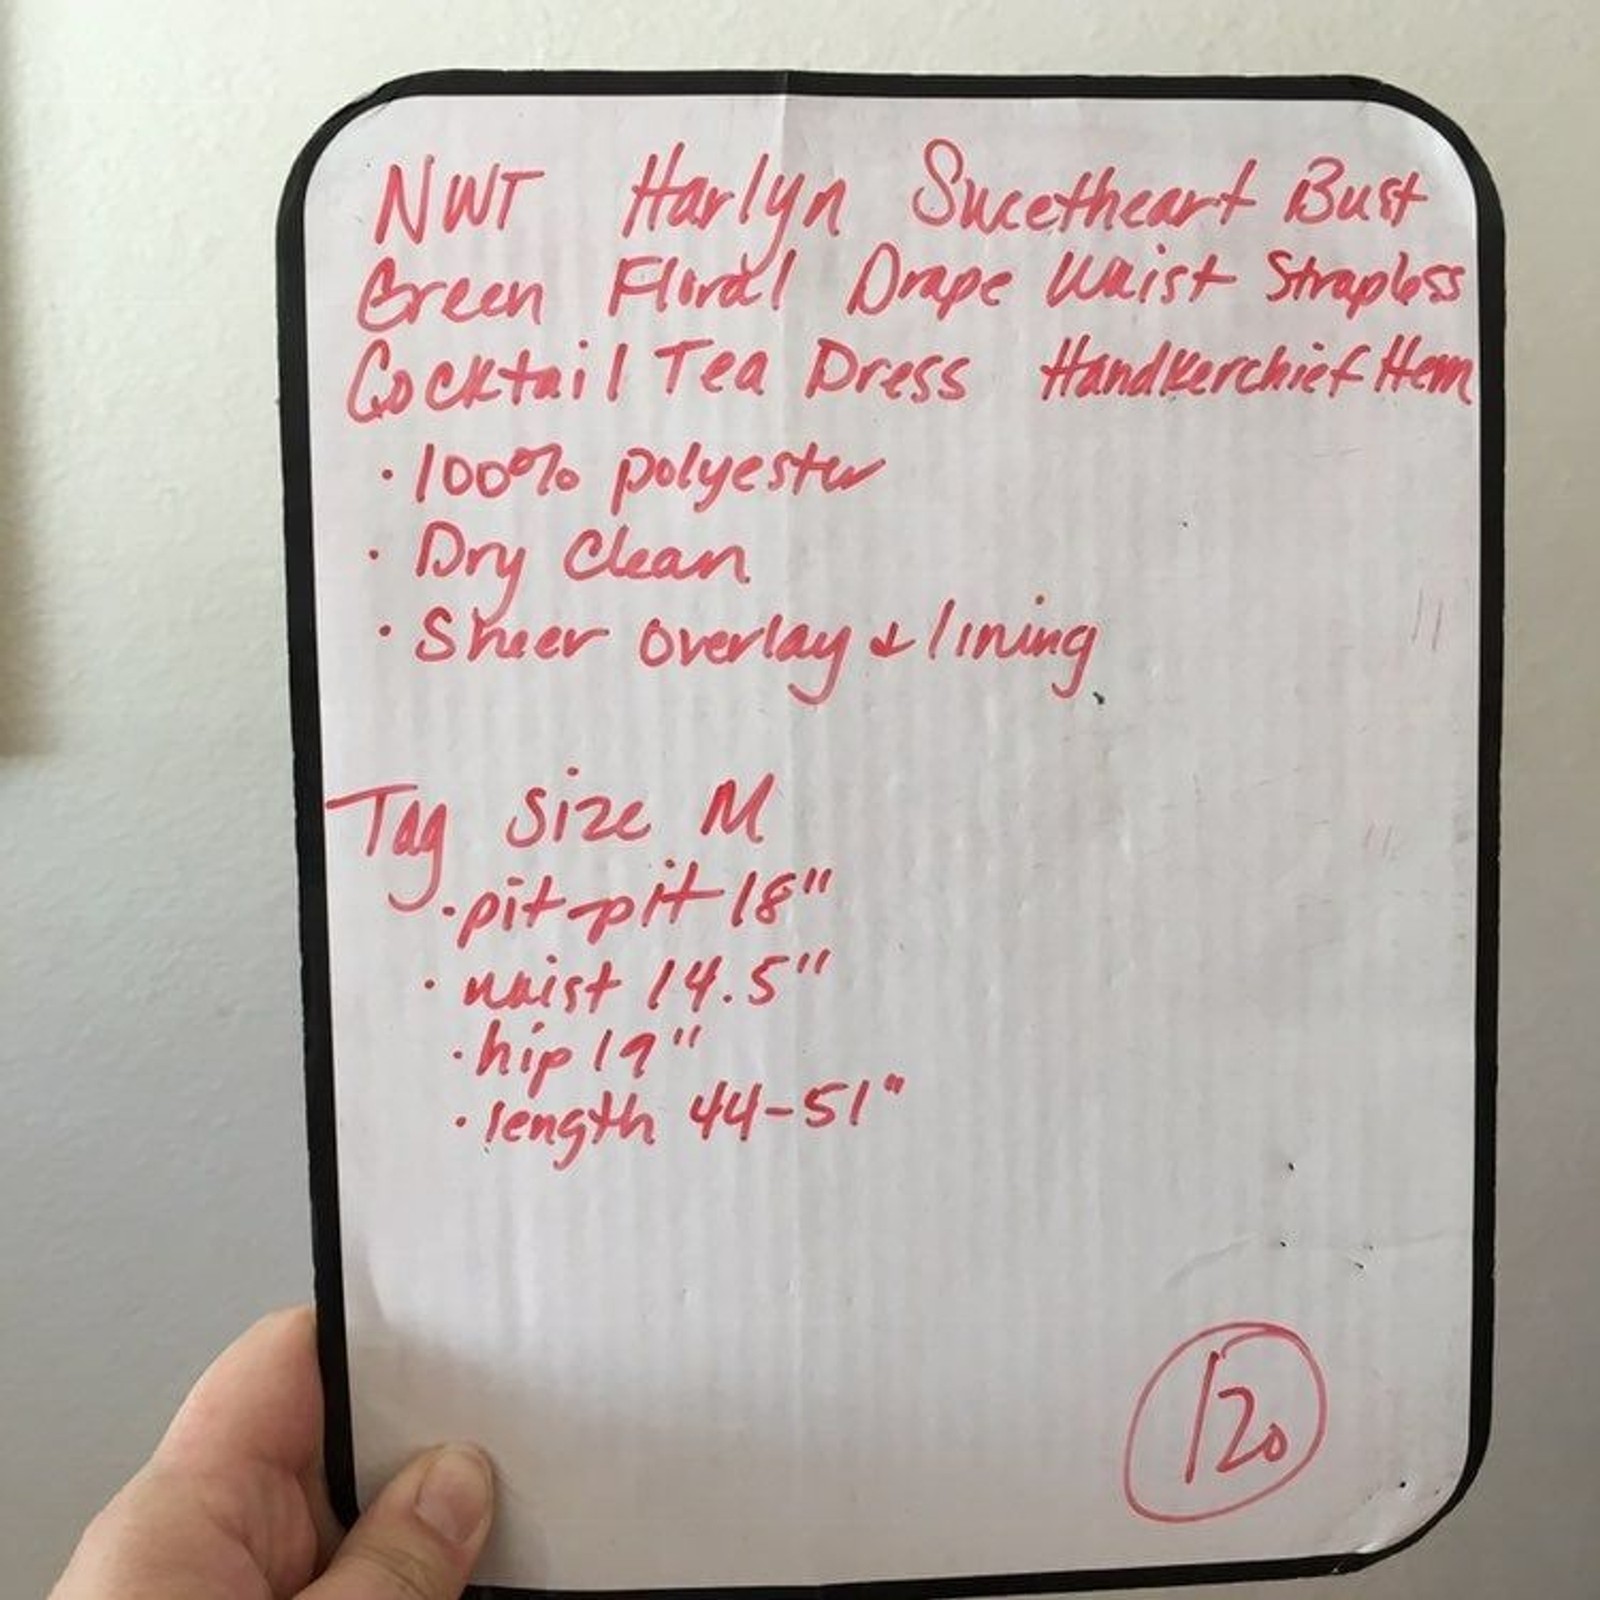 NWT Harlyn Sweetheart Bust
Green Floral Drape Waist Strapless
Cocktail Tea Dress Handkerchief Hem
· 100% polyester
· Dry Clean
· Sheer overlay & lining
Tag Size M
· pit-pit 18"
· waist 14.5"
· hip 19"
· length 44-51"
120